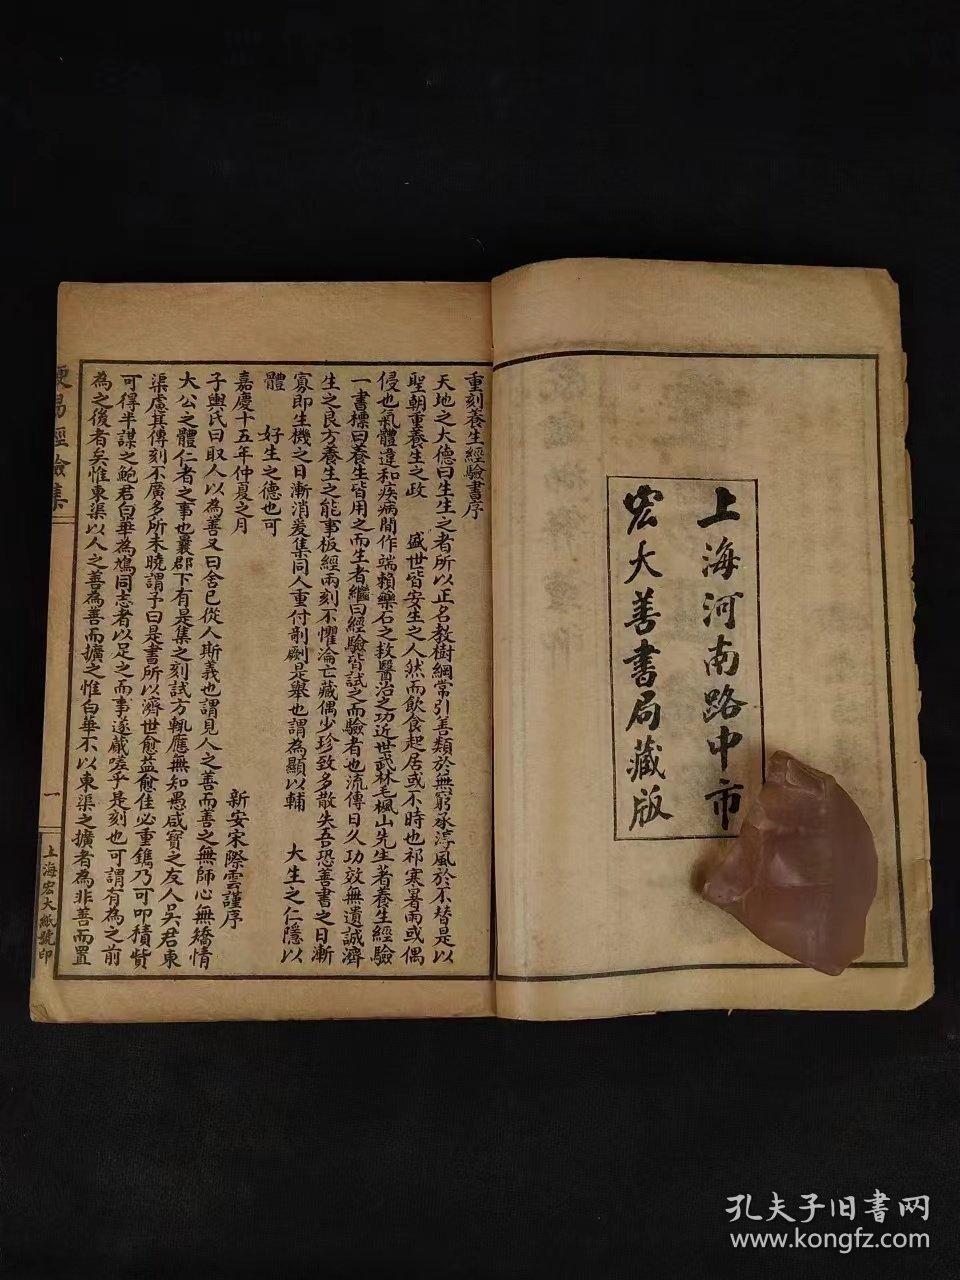 上海河南路中市
宏大善書局藏版
重刻養生經驗書序
天地之大德曰生生之者所以正名教樹綱常引善類於無窮承淳風於不替是以
聖朝重養生之政　盛世皆安生之人然而飲食起居或不時也祁寒暑雨或偶
侵也氣體違和疾病間作端賴藥石之救醫治之功近世武林毛楓山先生著養生經驗
一書標曰養生皆用之而生者繼曰經驗皆試之而驗者也流傳日久功效無遺誠濟
生之良方養生之能事板經兩刻不懼淪亡藏偶少珍致多散失吾恐善書之日漸
寡即生機之日漸消爰集同人重付剞劂是舉也謂為顯以輔　大生之仁隱以
體　好生之德也可
嘉慶十五年仲夏之月
新安宋際雲謹序
子輿氏曰取人以為善又曰舍已從人斯義也謂見人之善而善之無師心無矯情
大公之體仁者之事也曩郡下有是集之刻試方輒應無知愚咸寶之友人吳君東
渠慮其傳刻不廣多所未曉謂予曰是書所以濟世愈益愈佳必重鐫乃可叩積貲
可得半謀之鮑君白華為鳩同志者以足之而事遂蕆嗟乎是刻也可謂有為之前
為之後者矣惟東渠以人之善為善而擴之惟白華不以東渠之擴者為非善而置
便易經驗集
一
上海宏大紙號印
孔夫子旧书网
www.kongfz.com